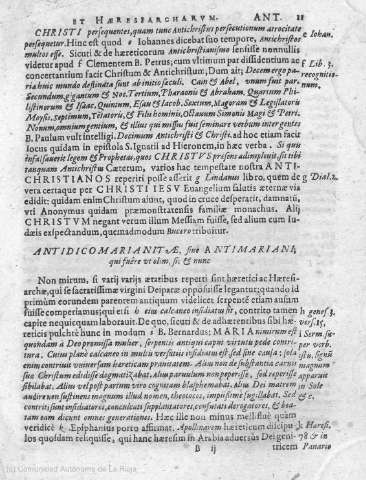 ET HÆRESEARCHARVM. ANT. 11
CHRISTI persequentes, quam tunc Antichristus persecutionum atrocitate
persequetur. Hinc est quod e Iohannes dicebat suo tempore, Antichristos e Iohan.
multos esse. Sicuti & de hæreticorum Antichristianismo sensisse nonnullis
videtur apud f Clementem B. Petrus, cum vltimum par dissidentium ac f Lib. 3.
concertantium facit Christum & Antichristum, Dum ait; Decem ergo pa- recognitio-
ria huic mundo destinata sunt ab initio seculi. Cain & Abel, vnum fuit par. num.
Secundum, gigantum & Noe, Tertium, Pharaonis & Abraham. Quartum Phi-
listinorum & Isaac, Quintum, Esau & Iacob. Sextum, Magorum & Legislatoris
Moysis, Septimum, Tetatoris, & Filii hominis, Octauum Simonis Magi & Petri.
Nonum, omnium gentium, & illius qui missus fuit seminare verbum inter gentes
B. Paulum vult intelligi. Decimum Antichristi & Christi. ad hoc etiam facit
locus quidam in epistola S. Ignatii ad Hieronem, in hæc verba. Si quis
infra
legem & Prophetas, quos CHRISTVS præsens adimpleuit, sit tibi
tanquam Antichristus Cæterum, varios hac tempestate nostra ANTI-
CHRISTIANOS reperiri posse asserit g Lindanus libro, quem de g Dial. 2.
vera certaque per CHRISTI IESV Euangelium salutis æternæ via
edidit: quidam enim Christum aiunt, quod in cruce desperarit, damnari,
vti Anonymus quidam præmonstratensis familiæ monachus. Alij
CHRISTVM negant verum illum Messiam fuisse, sed alium cum Iu-
dæis expectandum, quemadmodum Bucero tribuitur.
ANTIDICOMARIANITÆ, siue ANTIMARIANI,
qui fuêre vt olim, sic & nunc
Non mirum, si varij varijs ætatibus reperti sint hæretici ac Hæresi-
archæ, qui se sacratissimæ virgini Deiparæ opposuisse legantur; quando id
primùm eorundem parentem antiquum videlicet serpentē etiam ausum
fuisse comperiamus; qui etsi h insidiaretur calcaneo eius, contrito tamen h genes 3.
capite nequicquam laborauit. De quo, sicuti & de adhærentibus sibi hæ- vers. 15.
reticis pulchrè hunc in modum i B. Bernardus; MARIA nimirum est i Serm. sic-
quondam à Deo promissa mulier, serpentis antiqui caput virtutis pede contri- per verb.
tura. Cuius planè calcaneo in multis versutiis insidiatus est, sed sine causa; sola
enim contriuit vniuersam hæreticam prauitatem. Alius non de substantia carnis magnum
suæ Christum edidisse dogmatizabat. Alius paruulum non peperisse, sed reperisse apparuit
sibilabat. Alius vel post partum viro cognitam blasphemabat. Alius Dei matrem in Sole
audire non sustinens magnum illud nomen, theotocos, impiissimè suggillabat. Sed &c,
contriti sunt insidiatores, conculcati supplantatores, confutati derogatores, & bea-
tam eam dicunt omnes generationes. Hæc ille non minus mellifluè quàm
veridicè k Epiphanius porrò affirmat, Apollinarem hæreticum discipu- k Hæres.
los quosdam reliquisse, qui hanc hæresim in Arabia aduersus Dei geni- 78 & in
B ij tricem Panario
(c) Comunidad Autónoma de La Rioja